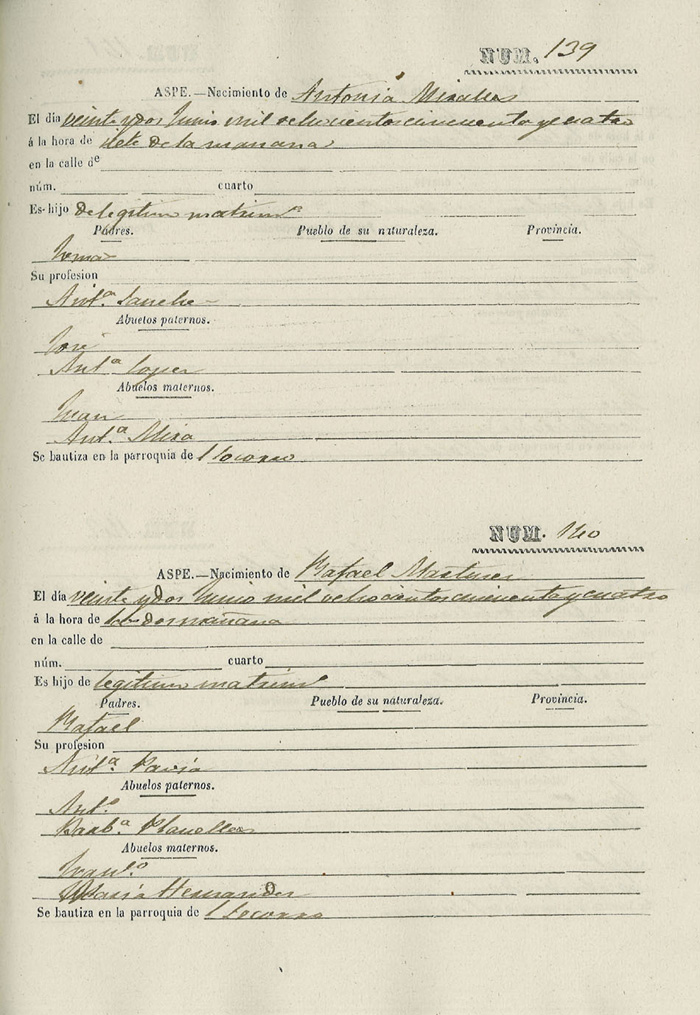 NUM. 139
ASPE.—Nacimiento de Antonia Miralles
El dia veinte y dos Junio mil ochocientos cincuenta y cuatro
á la hora de siete de la mañana
en la calle de
núm. cuarto
Es hijo de legitimo matrim.º
Padres. Pueblo de su naturaleza. Provincia.
Tomas
Su profesion
Ant.ª Sanche
Abuelos paternos.
José
Ant.ª Lopez
Abuelos maternos.
Juan
Ant.ª Mira
Se bautiza en la parroquia de Socorro
NUM. 140
ASPE.—Nacimiento de Rafael Martinez
El dia veinte y dos Junio mil ochocientos cincuenta y cuatro
á la hora de mañana
en la calle de
núm. cuarto
Es hijo de legitimo matrim.º
Padres. Pueblo de su naturaleza. Provincia.
Rafael
Su profesion
Ant.ª Pavia
Abuelos paternos.
Ant.º
Barb.ª Planelles
Abuelos maternos.
Fran.º
Maria Hernandez
Se bautiza en la parroquia de Socorro